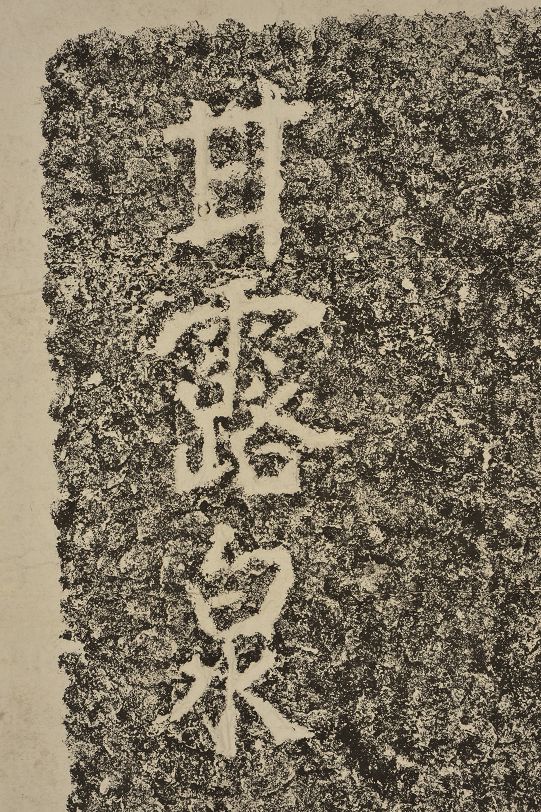 甘露泉